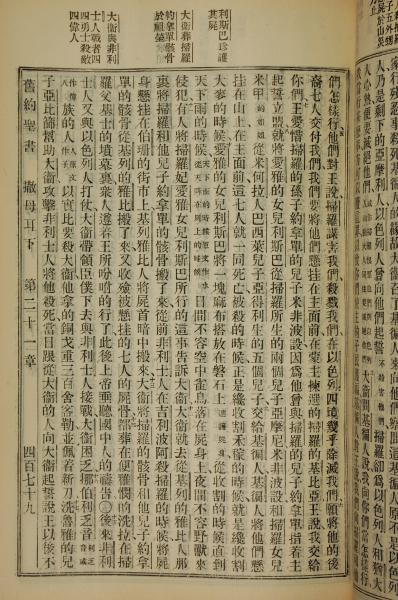 利斯巴珍護
其屍
大衛葬掃羅
約拿單骸骨
於祖塋
大衛與非利
士人戰者四
四勇士殺敵
四偉人
們怎樣行他們對王說掃羅謀害我們殺戮我們在以色列四境幾乎除滅我們願將他的後
裔七人交付我們我們要將他們懸挂在主面前在蒙主揀選的掃羅的基比亞王說我交給
你們王愛惜掃羅的孫子約拿單的兒子米非波設因為他曾與掃羅的兒子約拿單指着主
起誓立盟就將愛雅的女兒利斯巴從掃羅所生的兩個兒子亞摩尼米非波設和掃羅女兒
米甲的姐姐從米何拉人巴西萊兒子亞得利生的五個兒子交給基徧人基徧人將他們懸
挂在山上在主面前這七人就一同死亡被殺的時候正是纔收割禾稼的時候就是纔收割
大麥的時候愛雅的女兒利斯巴將一塊麻布搭放在磐石上從收割的時候直到
天下雨的時候天下雨的時候原文作水從天降在屍上的時候日間不容空中雀鳥落在屍身上夜間不容野獸來
侵犯有人將掃羅妃愛雅女兒利斯巴所行的這事告訴大衛大衛就去從基列的雅比人那
裏將掃羅和他兒子約拿單的骸骨搬了來從前非利士人在吉利波阿殺掃羅的時候將屍
身懸挂在伯珊的街市上基列雅比人將屍首暗中搬來大衛將掃羅的骸骨和他兒子約拿
單的骸骨從基列的雅比搬了來又收殮被懸挂的七人的屍骨都葬在便雅憫的洗拉在掃
羅父基士的墳墓裏衆人遵着王所吩咐的行了此後上帝垂聽國中人的禱告〇後來非利
士人又與以色列人打仗大衛帶領臣僕下去與非利士人接戰大衛困乏挪伯利乏音
族的人以實比要殺大衛他拿的銅戈重三百舍客勒並佩着新刀洗魯雅的兒
子亞比篩幫助大衛攻擊非利士人將他殺死當日跟從大衛的人向大衛起誓說王以後不
舊約聖書 撒母耳下 第二十一章 四百七十九